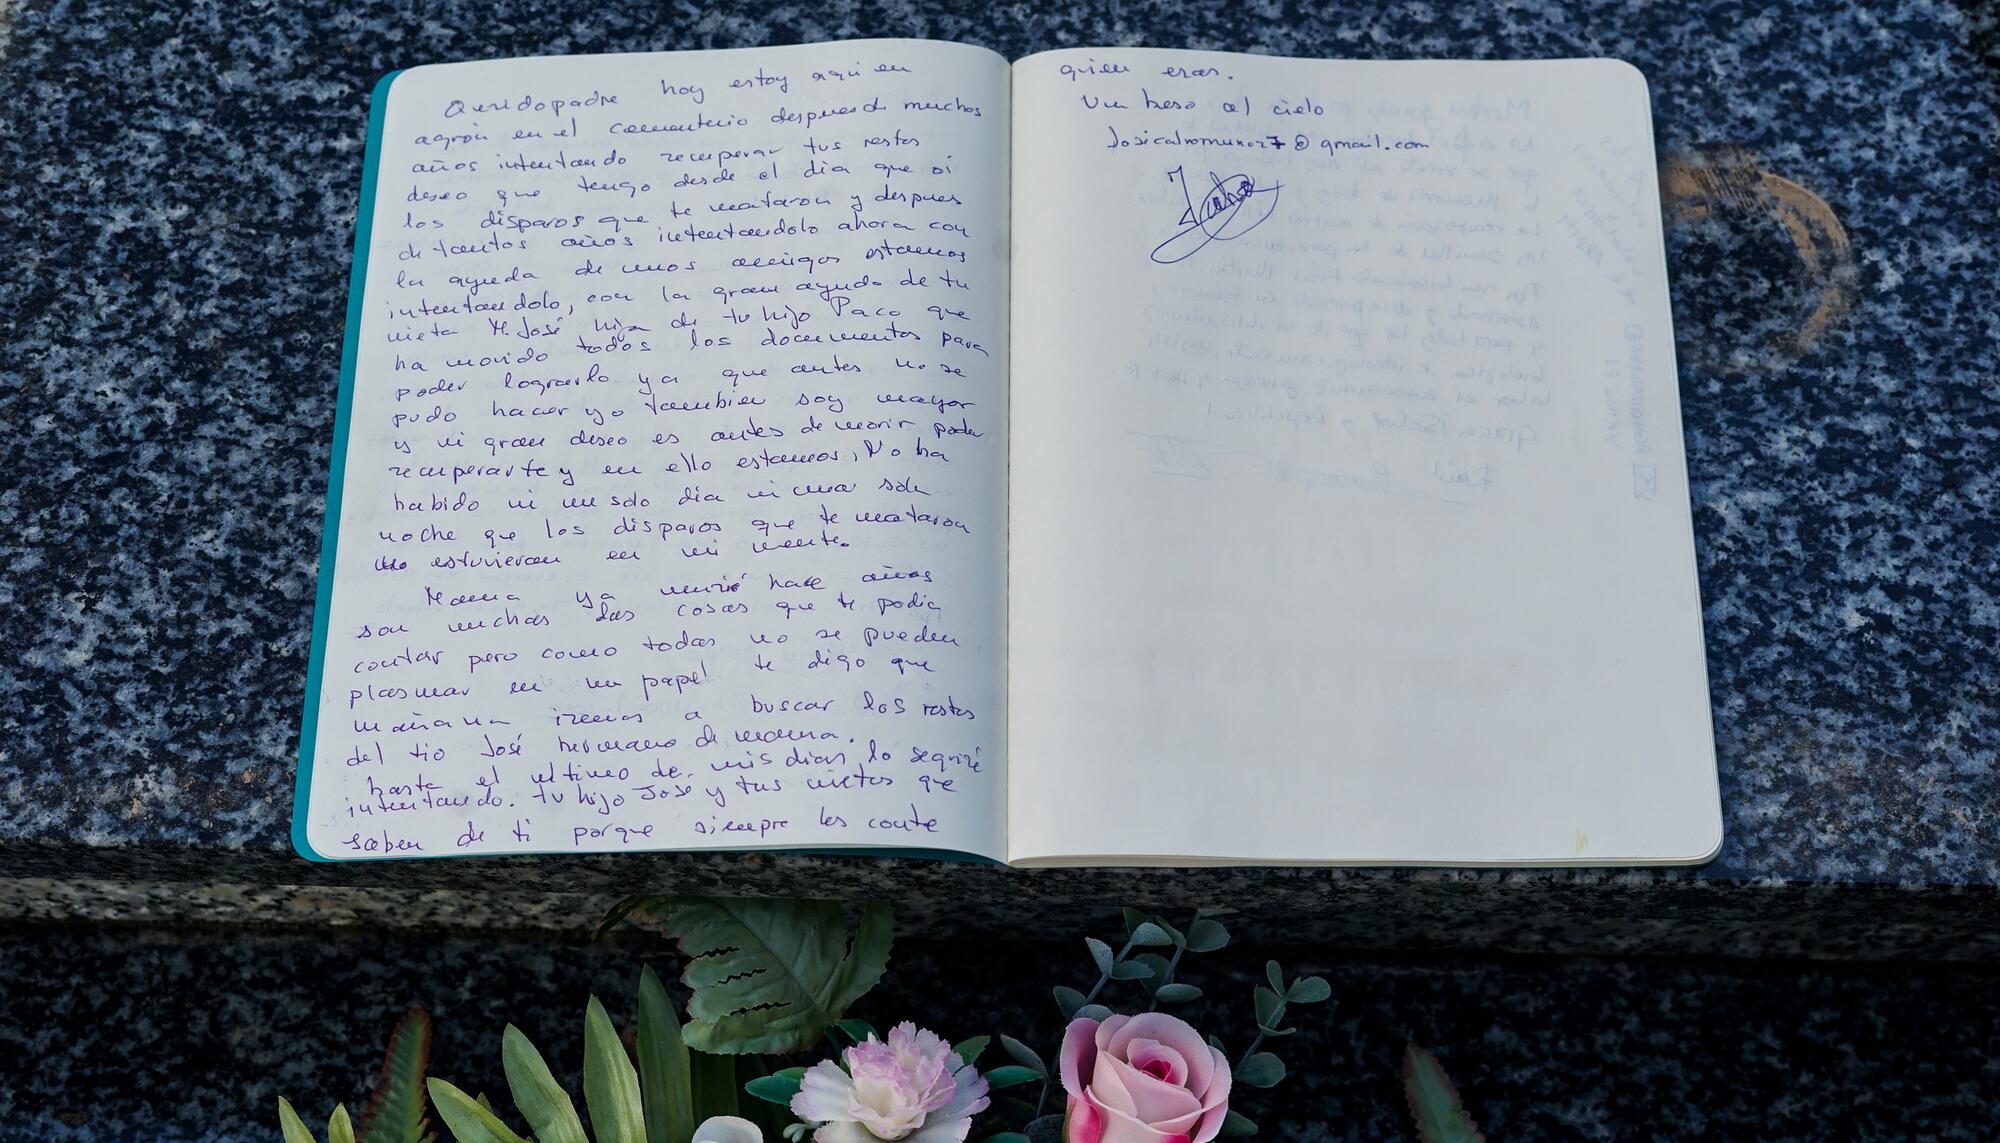 Querido padre hoy estoy aqui en
agrón en el cementerio despues de muchos
años intentando recuperar tus restos
deseo que tengo desde el día que oí
los disparos que te mataron y despues
de tantos años intentandolo ahora con
la ayuda de unos amigos estamos
intentandolo, con la gran ayuda de tu
nieta Mª José hija de tu hijo Paco que
ha movido todos los documentos para
poder lograrlo ya que antes no se
pudo hacer yo tambien soy mayor
y mi gran deseo es antes de morir poder
recuperarte y en ello estamos, No ha
habido ni un solo día ni una sola
noche que los disparos que te mataron
no estuvieran en mi mente.
Mama ya murió hace años
son muchas las cosas que te podia
contar pero como todas no se pueden
plasmar en un papel te digo que
mañana iremos a buscar los restos
del tio José hermano de mama.
hasta el ultimo de mis dias lo seguiré
intentando. tu hijo José y tus nietos que
saben de ti porque siempre les conte
quien eras.
Un beso al cielo
@gmail.com